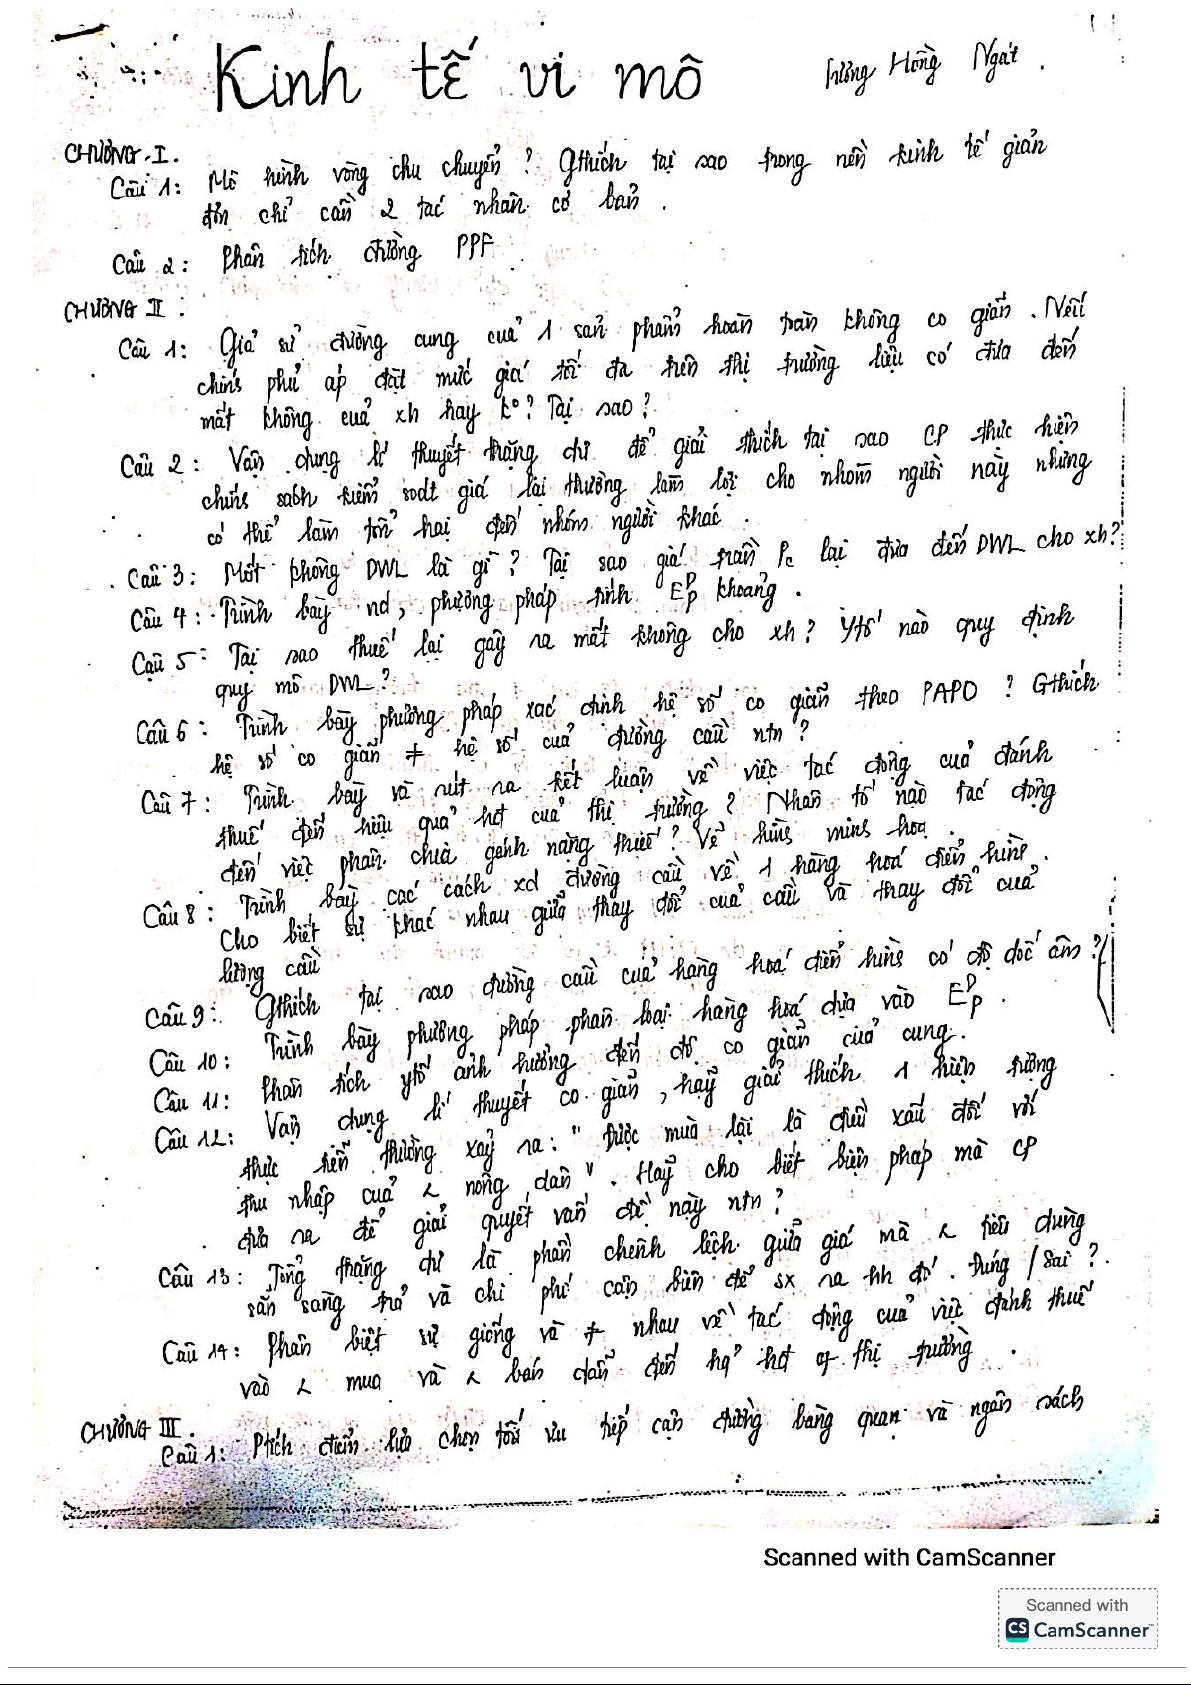 Kinh tế vi mô
Trương Hồng Ngát.
CHƯƠNG I.
Câu 1: Mô hình vòng chu chuyển? Gthích tại sao trong nền kinh tế giản
đơn chỉ cần 2 tác nhân cơ bản.
Câu 2: Phân tích đường PPF
CHƯƠNG II.
Câu 1: Giả sử đường cung của 1 sản phẩm hoàn toàn không co giãn. Nếu
chính phủ áp đặt mức giá tối đa trên thị trường liệu có đưa đến
mất không của xh hay ko? Tại sao?
Câu 2: Vận dụng lí thuyết thặng dư để giải thích tại sao CP thực hiện
chính sách kiểm soát giá lại thường làm lợi cho nhóm người này nhưng
có thể làm tổn hại đến nhóm người khác.
Câu 3: Mất không DWL là gì? Tại sao giá trần Pc lại đưa đến DWL cho xh?
Câu 4: Trình bày nd, phương pháp tính EDP khoảng.
Câu 5: Tại sao thuế lại gây ra mất không cho xh? Ytố nào quy định
quy mô DWL?
Câu 6: Trình bày phương pháp xác định hệ số co giãn theo PAPO? Gthích
hệ số co giãn ≠ hệ số của đường cầu ntn?
Câu 7: Trình bày và rút ra kết luận về việc tác động của đánh
thuế đến hiệu quả hđ của thị trường? Nhân tố nào tác động
đến việc phân chia gánh nặng thuế? Vẽ hình minh hoạ.
Câu 8: Trình bày các cách xđ đường cầu về 1 hàng hoá điển hình.
Cho biết sự khác nhau giữa thay đổi của cầu và thay đổi của
lượng cầu
Câu 9: Gthích tại sao đường cầu của hạng hoá điển hình có độ dốc âm?
Câu 10: Trình bày phương pháp phân loại hàng hoá dựa vào EDP.
Câu 11: Phân tích ytố ảnh hưởng đến độ co giãn của cung.
Câu 12: Vận dụng lí thuyết co giãn, hãy giải thích 1 hiện tượng
thực tiễn thường xảy ra: "Được mùa lại là điều xấu đối với
thu nhập của 2 nông dân". Hãy cho biết biện pháp mà CP
đưa ra để giải quyết vấn đề này ntn?
Câu 13: Tổng thặng dư là phần chênh lệch giữa giá mà 2 tiêu dùng
sẵn sàng trả và chi phí cận biên để sx ra hh đó. Đúng/Sai?
Câu 14: Phân biệt sự giống và ≠ nhau về tác động của việc đánh thuế
vào 2 mua và 2 bán dẫn đến hq' hđ of thị trường.
CHƯƠNG III.
Câu 1: Ptích điểm lựa chọn tối ưu tiếp cận đường bàng quan và ngân sách
Scanned with CamScanner
Scanned with
CS CamScanner